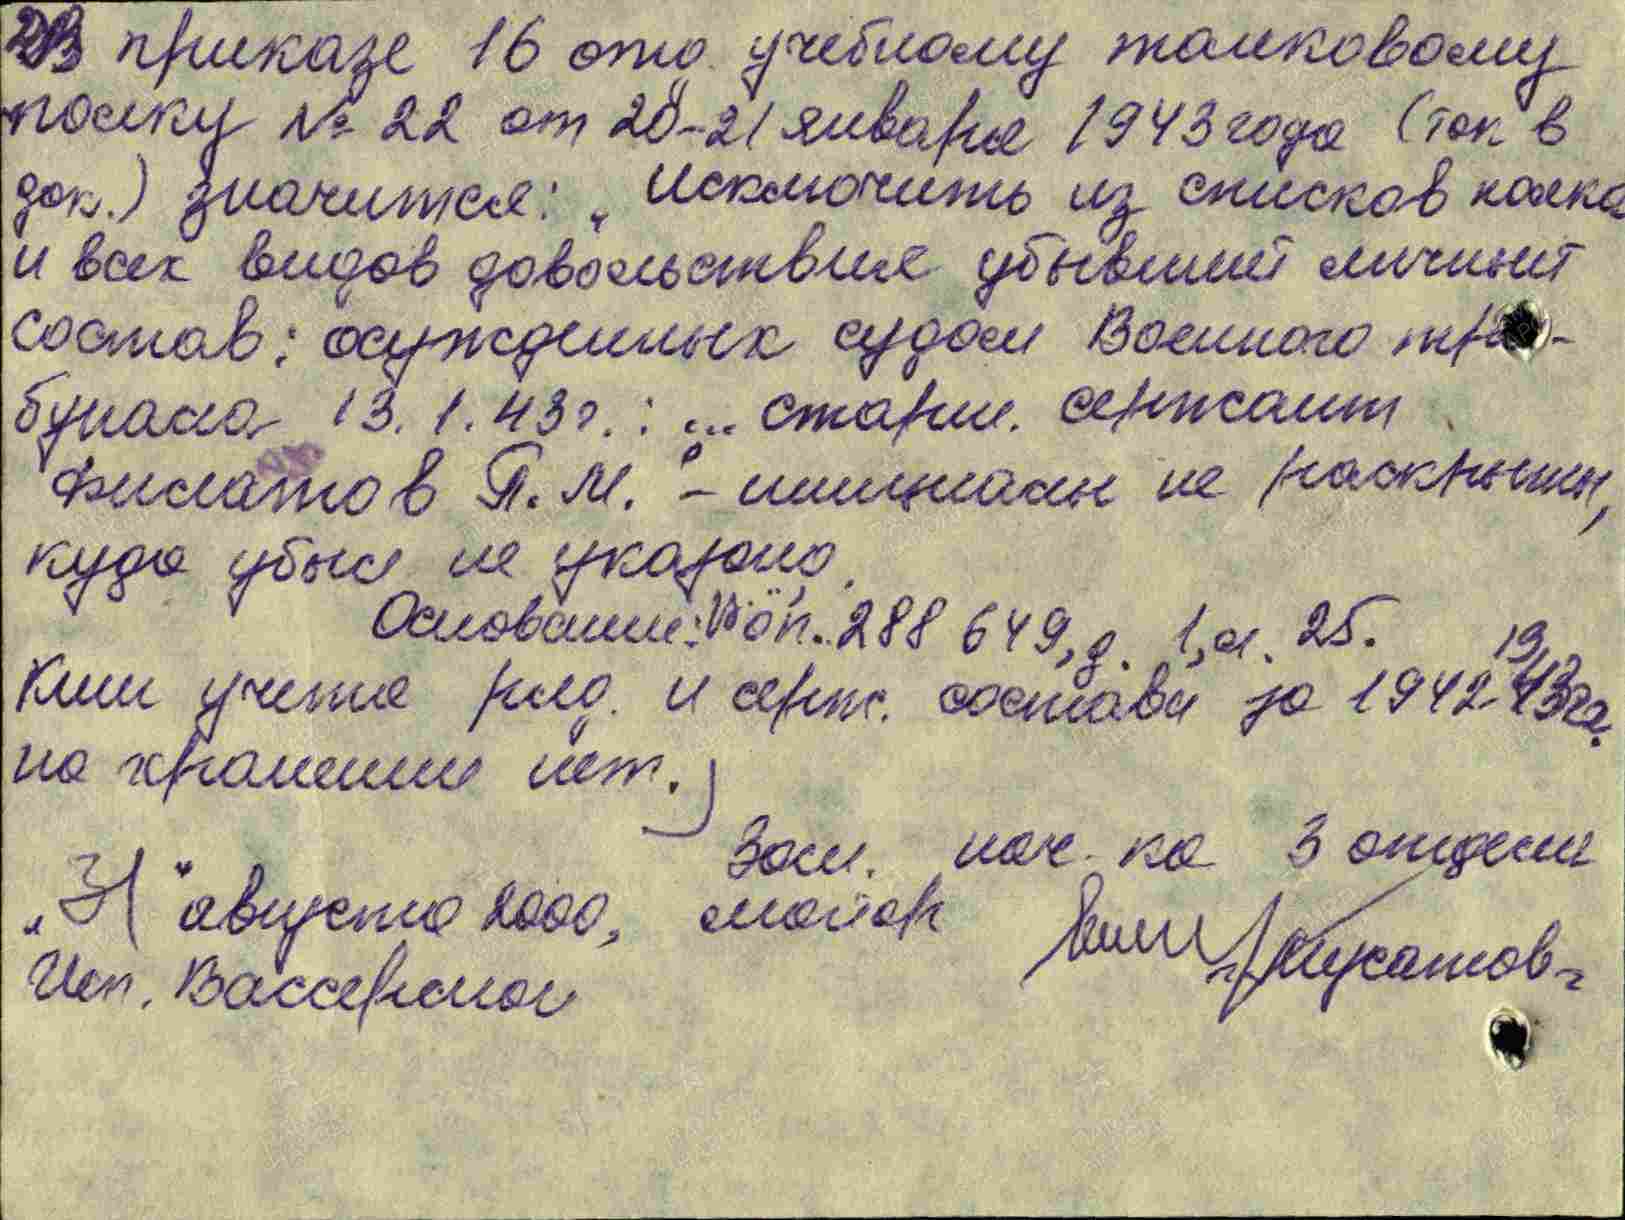 2) В приказе 16 отд. учебному танковому
полку № 22 от 20-21 января 1943 года (так в
док.) значится: „Исключить из списков полка
и всех видов довольствия убывший личный
состав: осужденных судом Военного три-
бунала 13.1.43г.: ... старш. сержант
Филатов П.М." – инициалы не раскрыты,
куда убыл не указано.
Основание: оп. 288 649, д. 1, л. 25.
Книг учета ряд. и серж. состава за 1942-1943 гг.
на хранении нет.
Зам. нач-ка 3 отдела
„31" августа 2000, майор
Исп. Вассерман